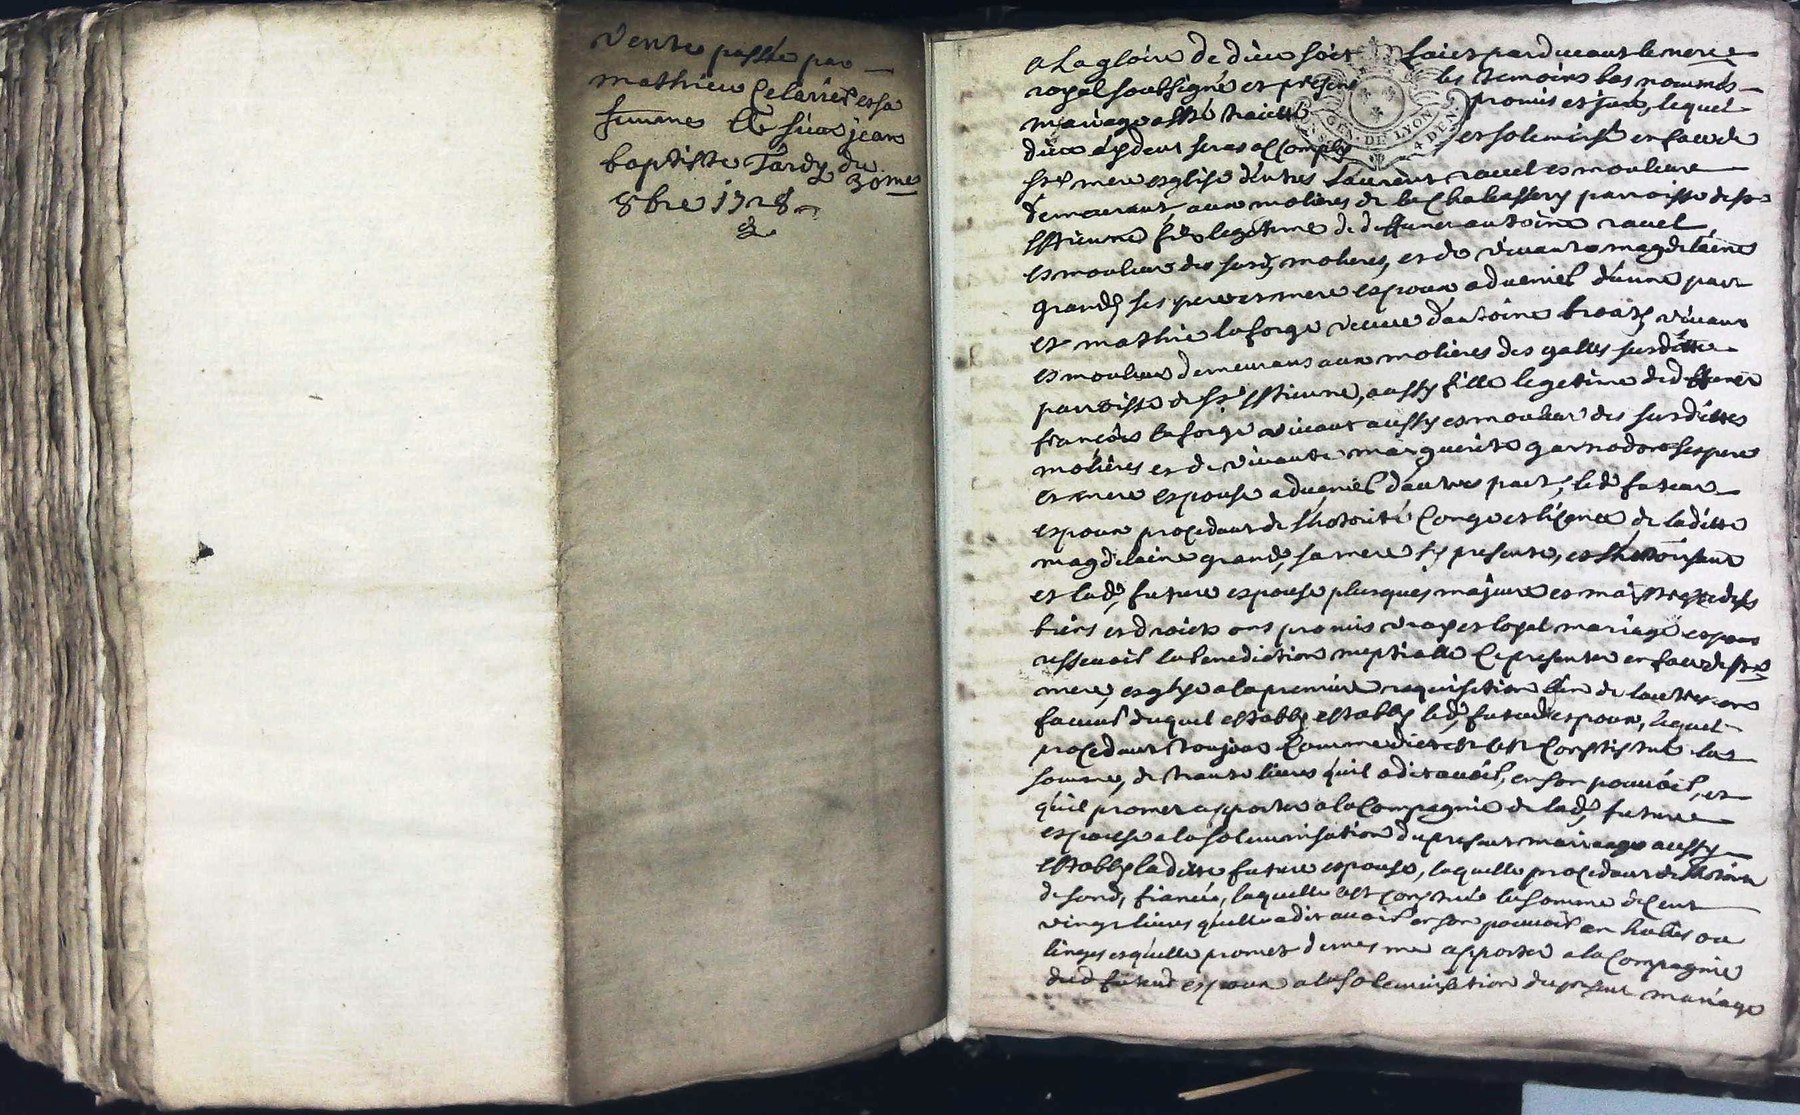 Vente passée par
mathieu Celarier et sa
femme a sieur jean
baptiste Tardy du
30me
8bre 1728
GEN. DE LYON
A La gloire de dieu soit faict pardevant le no.re
royal soubsigné et présent les temoins bas nommés
mariage a esté traitté promis et juré, lequel
dieu aydant seras accomply et solemnisé en face de
ste mere esglise d'entres Laurent ravel esmouleur
demeurant aux molieres de la Chabassery parroisse de st
Estienne fils legetime de deffunct antoine ravel
esmouleur des susd. molieres, et de vivante magdelaine
grand, ses pere et mere espoux advenir d'une part
et mathie laforge veuve d'antoine vivant
esmouleur demeurant aux molieres des gattes susditte
parroisse de st Estienne, aussy fille legetime de deffunct
françois laforge vivant aussy esmouleur des susdittes
molieres et de vivante marguerite ses pere
et mere espouse advenir d'autres part, led. futur
espoux procedant de l'hotorité Conge et licence de laditte
magdelaine grand, sa mere icy presente, et l'hotorisant
et lad. future espouse plusques majeure et maittresse de ses
biens et droicts ont promis vray et loyal mariage
ressevoir la benediction nuptialle se presenter en face de ste
mere esglize a la premiere requisition l'un de l'autre en
faveur duquel establys estably led. futur espoux, lequel
procedant toujour comme dict est s'est Constitué la
somme, de trante livres qu'il a dit avoir, en son pouvoir, et
qu'il promet apporter a la Compagnie de lad. future
espouse a la solemnisation du present mariage aussy
establye laditte future espouse, laquelle procedant de l'hotorité
de sond. fiancé, laquelle s'est constituée la somme de Cent
vingt livres qu'elle a dit avoir en son pouvoir en habis ou
linges et qu'elle promet de mesme apporter a la Compagnie
dud futur espoux a la solemnisation du present mariage